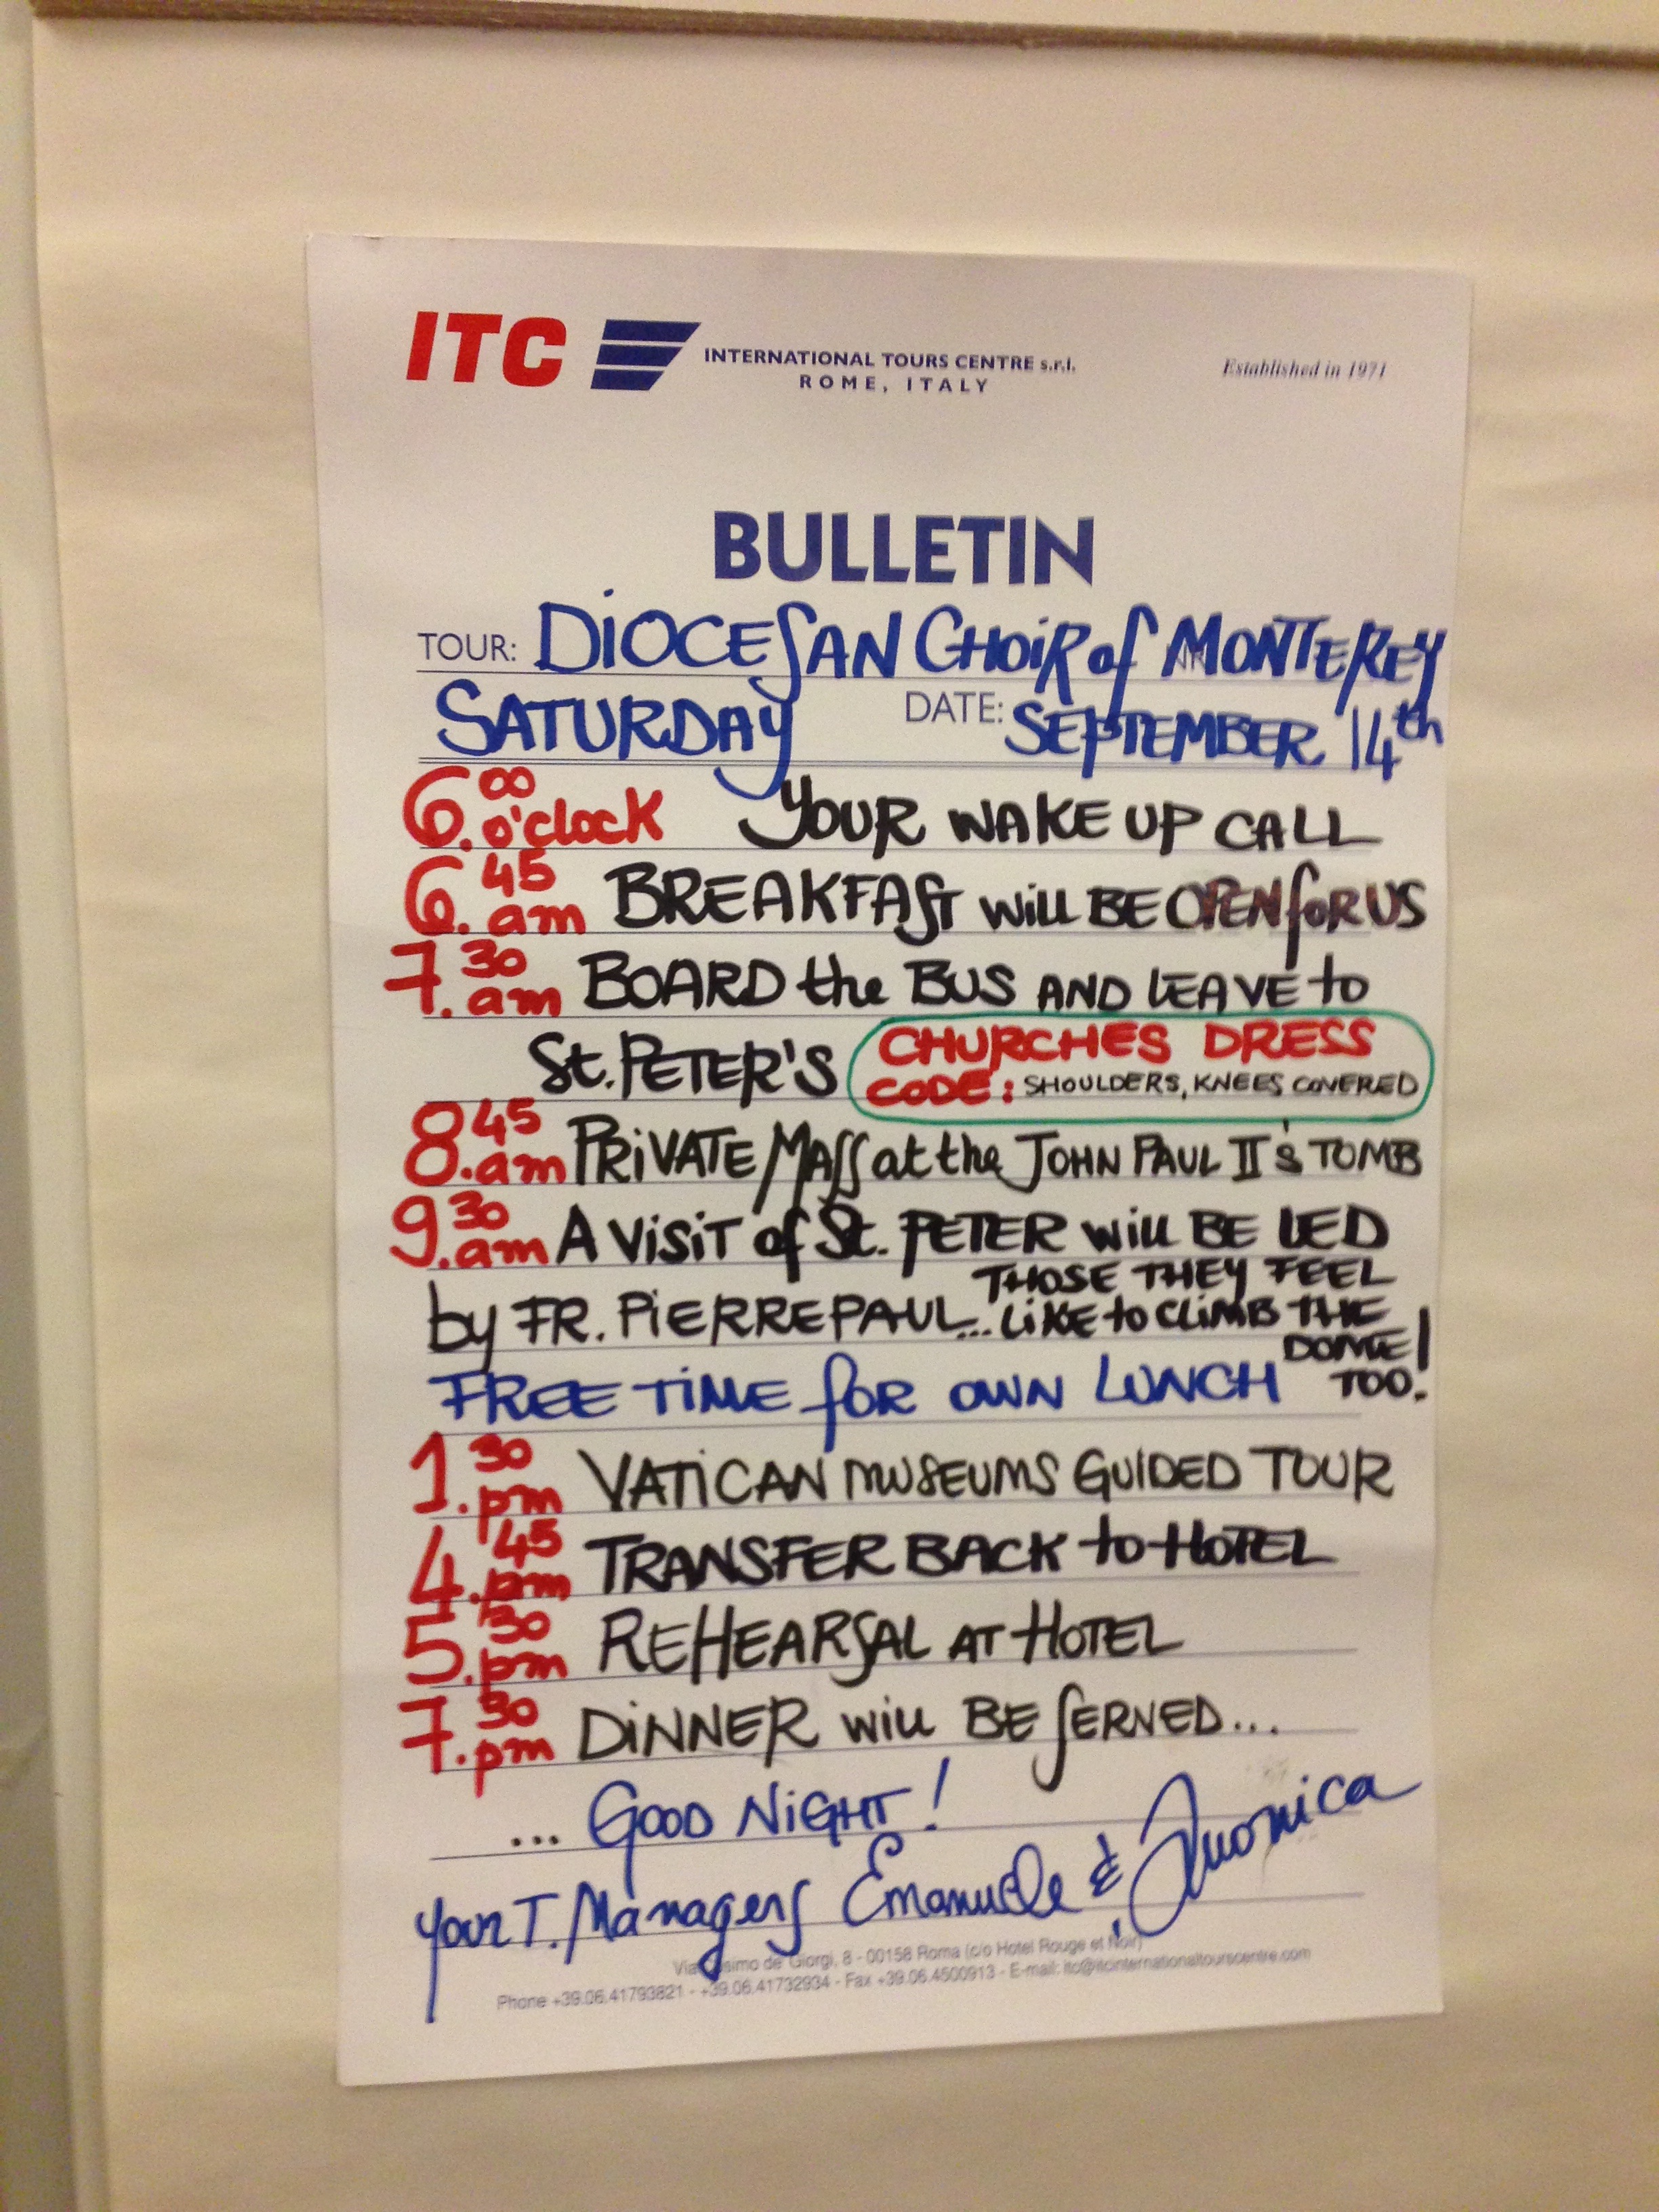 ITC INTERNATIONAL TOURS CENTRE s.r.l.
ROME, ITALY
Established in 1971
BULLETIN
TOUR: DIOCESAN CHOIR of MONTEREY
SATURDAY DATE: SEPTEMBER 14th
6.00 o'clock YOUR WAKE UP CALL
6.45 am BREAKFAST WILL BE OPEN for US
7.30 am BOARD the BUS AND LEAVE to
St. PETER'S CHURCHES DRESS
CODE: SHOULDERS, KNEES COVERED
8.45 am PRIVATE MASS at the JOHN PAUL II's TOMB
9.30 am A VISIT of St. PETER WILL BE LED
by FR. PIERREPAUL... THOSE THEY FEEL
LIKE to CLIMB THE
DOME
TOO!
FREE TIME for OWN LUNCH
1.30 pm VATICAN MUSEUMS GUIDED TOUR
4.45 pm TRANSFER BACK to HOTEL
5.30 pm REHEARSAL AT HOTEL
7.30 pm DINNER WILL BE SERVED...
... GOOD NIGHT!
your T. Managers Emanuele &
Via de Giorgi, 8 - 00158 Roma (c/o Hotel Rouge et Noir)
Phone +39.06.41793821 - +39.06.41732934 - Fax +39.06.4500913 - E-mail: itc@itcinternationaltourscentre.com